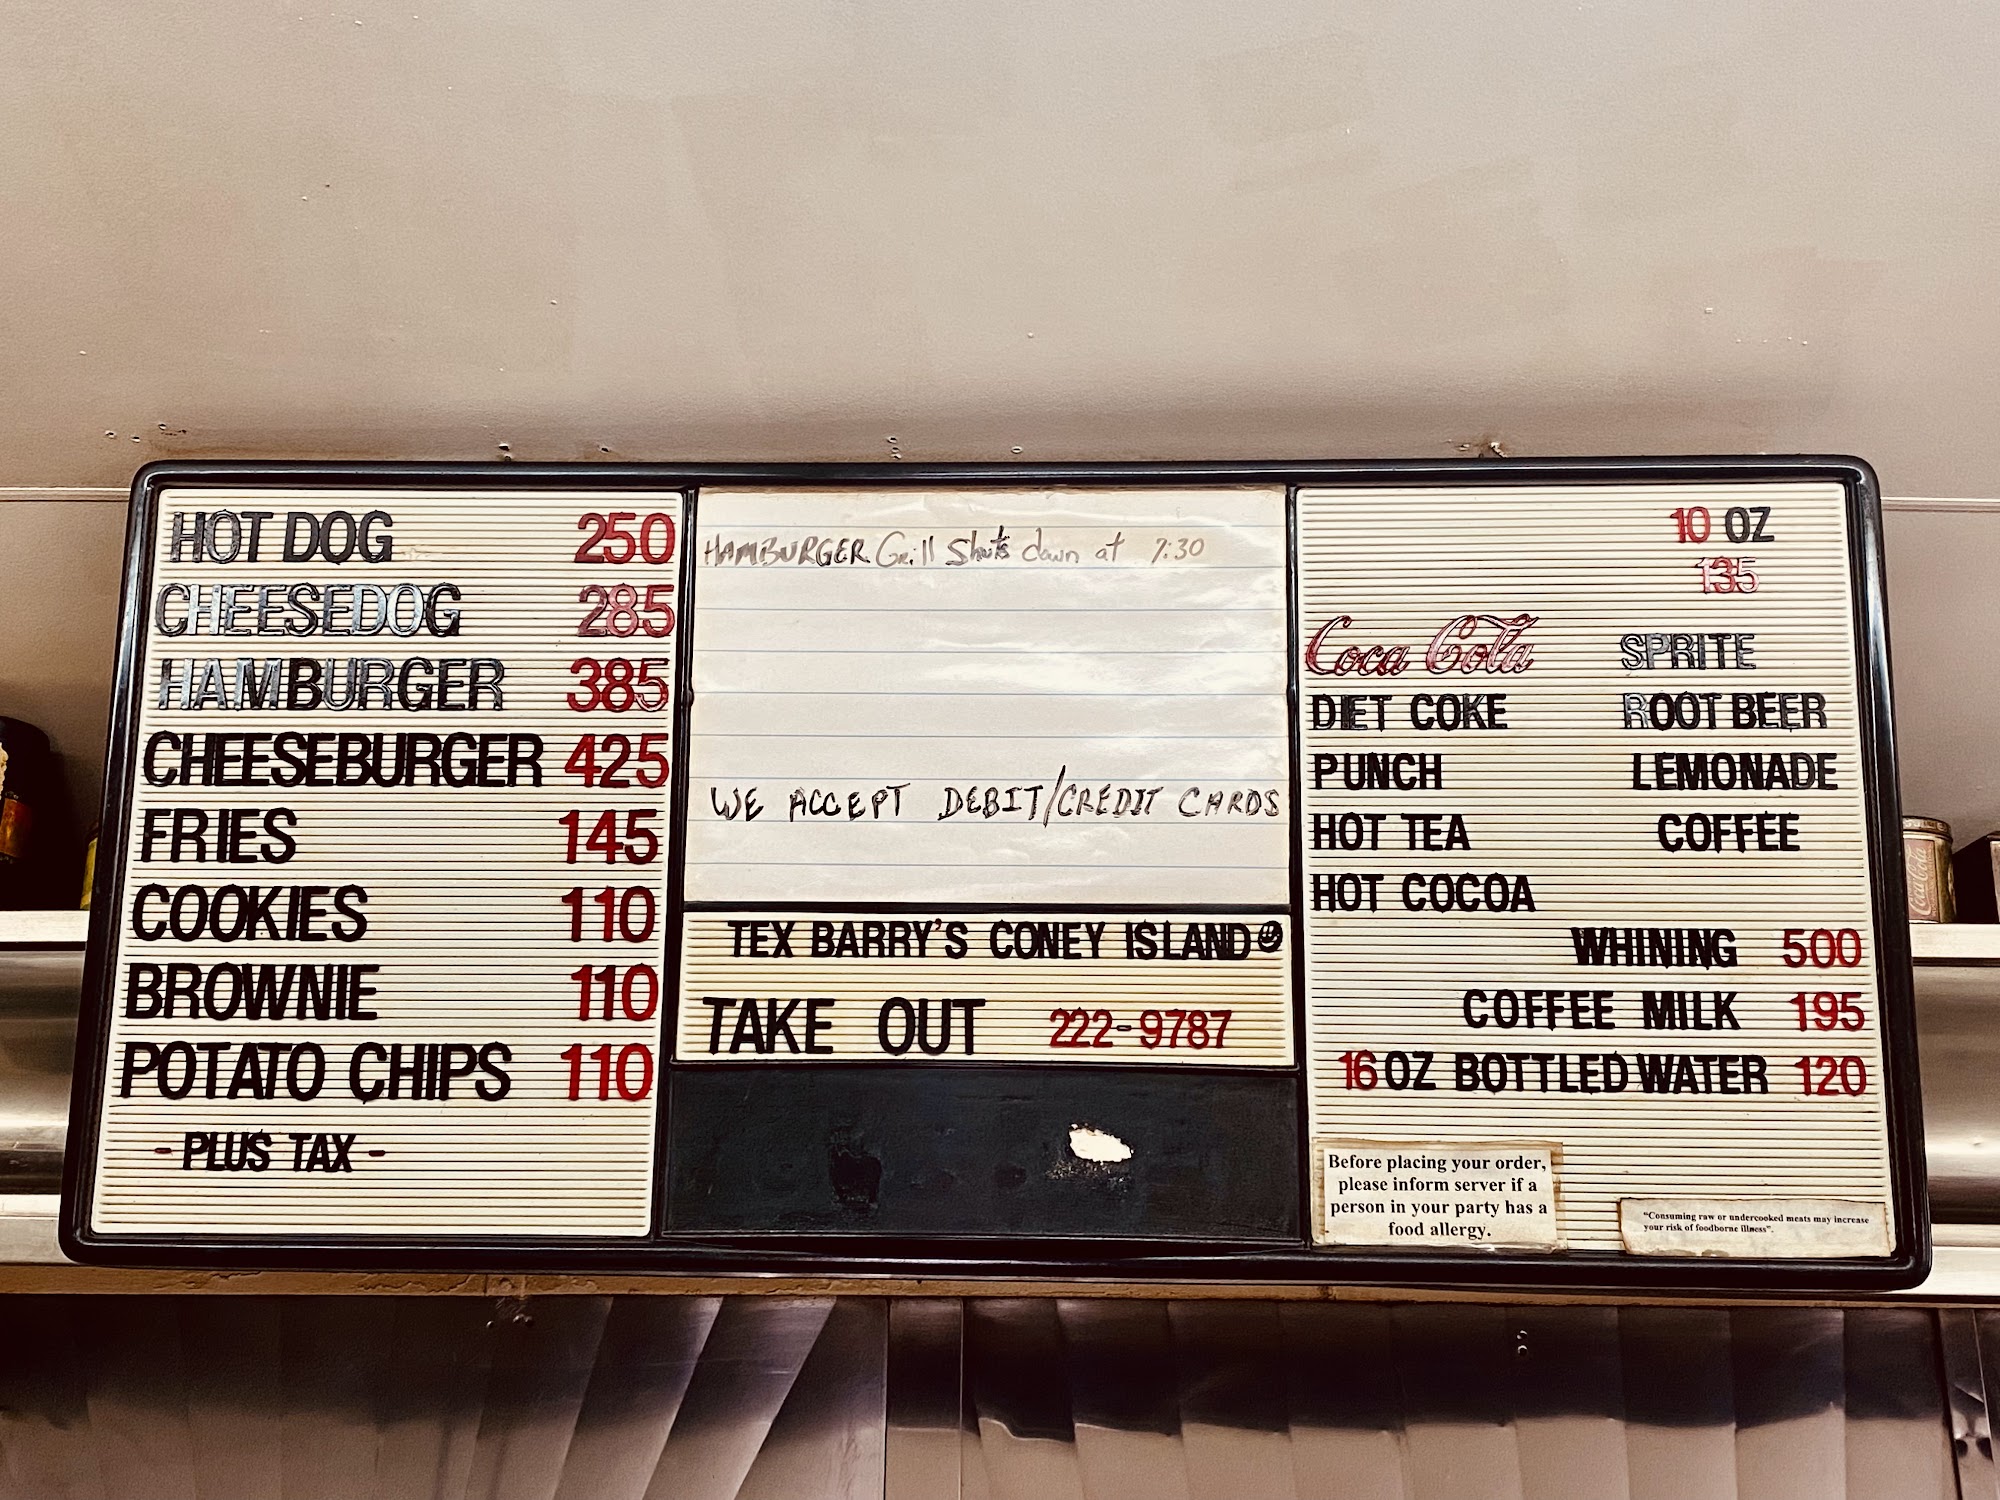 HOT DOG 250
CHEESEDOG 285
HAMBURGER 385
CHEESEBURGER 425
FRIES 145
COOKIES 110
BROWNIE 110
POTATO CHIPS 110
- PLUS TAX -
HAMBURGER Grill Shuts down at 7:30
WE ACCEPT DEBIT/CREDIT CARDS
TEX BARRY'S CONEY ISLAND
TAKE OUT 222-9787
10 OZ
135
Coca Cola SPRITE
DIET COKE ROOT BEER
PUNCH LEMONADE
HOT TEA COFFEE
HOT COCOA
WHINING 500
COFFEE MILK 195
16 OZ BOTTLED WATER 120
Before placing your order,
please inform server if a
person in your party has a
food allergy.
"Consuming raw or undercooked meats may increase
your risk of foodborne illness".
Coca-Cola